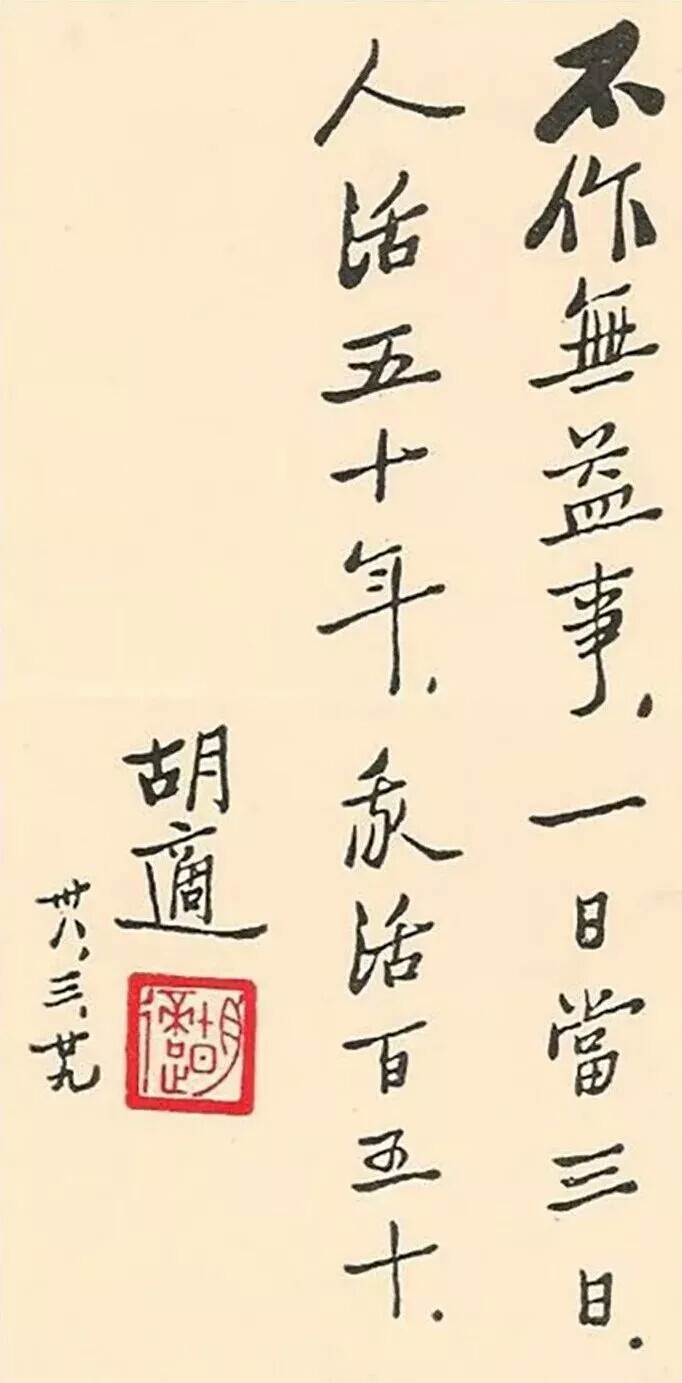 不作無益事，一日當三日．
人活五十年，我活百五十．
胡適
卅八、三、廿九
胡適